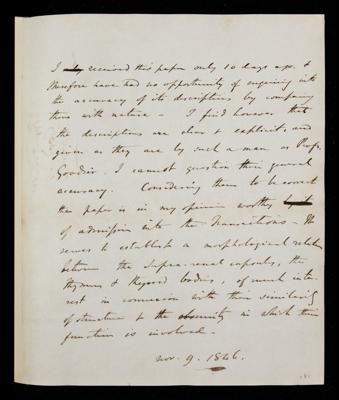 I received this paper only 10 days ago, &
therefore have had no opportunity of enquiring into
the accuracy of its descriptions by comparing
them with nature – I find however that
the descriptions are clear & explicit, and
given as they are by such a man as Profr
Goodsir. I cannot question their general
accuracy. Considering them to be correct
the paper is in my opinion worthy
of admission into the Transactions – It
serves to establish a morphological relation
between the Supra-renal capsules, the
thymus & thyroid bodies, of much inte-
rest in connexion with their similarity
of structure & the obscurity in which their
function is involved –
Nov. 9. 1846.